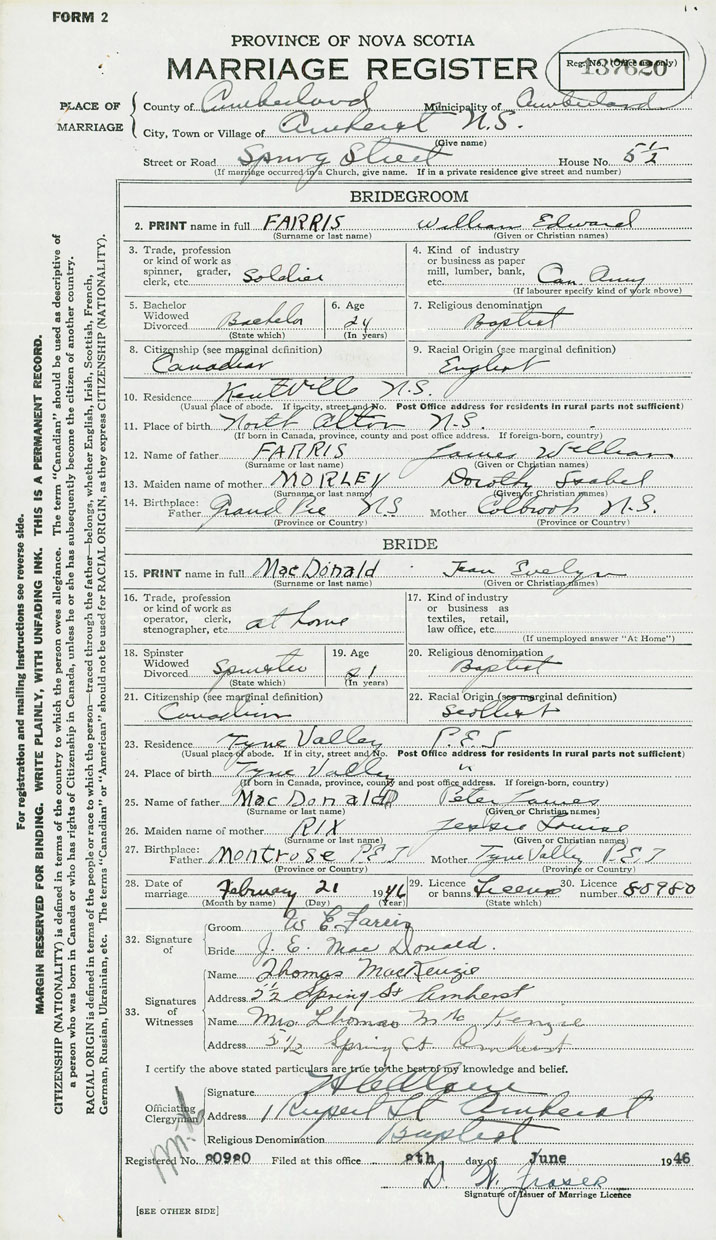 FORM 2
PROVINCE OF NOVA SCOTIA
MARRIAGE REGISTER
Reg. No. (Office use only)
137620
PLACE OF MARRIAGE
County of Cumberland Municipality of Cumberland
City, Town or Village of Amherst N.S.
(Give name)
Street or Road Spring Street House No. 5 1/2
(If marriage occurred in a Church, give name. If in a private residence give street and number)
BRIDEGROOM
2. PRINT name in full FARRIS William Edward
(Surname or last name) (Given or Christian names)
3. Trade, profession or kind of work as spinner, grader, clerk, etc. Soldier
4. Kind of industry or business as paper mill, lumber, bank, etc. Can. Army
(If labourer specify kind of work above)
5. Bachelor Widowed Divorced Bachelor
(State which)
6. Age 24
(In years)
7. Religious denomination
Baptist
8. Citizenship (see marginal definition)
Canadian
9. Racial Origin (see marginal definition)
English
10. Residence Kentville N.S.
(Usual place of abode. If in city, street and No. Post Office address for residents in rural parts not sufficient)
11. Place of birth North Alton N.S.
(If born in Canada, province, county and post office address. If foreign-born, country)
12. Name of father FARRIS James William
(Surname or last name) (Given or Christian names)
13. Maiden name of mother MORLEY Dorothy Isabel
(Surname or last name) (Given or Christian names)
14. Birthplace: Father Grand Pre NS Mother Colbrook N.S.
(Province or Country) (Province or Country)
BRIDE
15. PRINT name in full MacDonald Jean Evelyn
(Surname or last name) (Given or Christian names)
16. Trade, profession or kind of work as operator, clerk, stenographer, etc. at home
17. Kind of industry or business as textiles, retail, law office, etc.
(If unemployed answer "At Home")
18. Spinster Widowed Divorced Spinster
(State which)
19. Age 21
(In years)
20. Religious denomination
Baptist
21. Citizenship (see marginal definition)
Canadian
22. Racial Origin (see marginal definition)
Scottish
23. Residence Tyne Valley P.E.I
(Usual place of abode. If in city, street and No. Post Office address for residents in rural parts not sufficient)
24. Place of birth Tyne Valley "
(If born in Canada, province, county and post office address. If foreign-born, country)
25. Name of father MacDonald Peter James
(Surname or last name) (Given or Christian names)
26. Maiden name of mother RIX Jessie Louise
(Surname or last name) (Given or Christian names)
27. Birthplace: Father Montrose P.E.I Mother Tyne Valley P.E.I
(Province or Country) (Province or Country)
28. Date of marriage February 21 1946
(Month by name) (Day) (Year)
29. Licence or banns License
(State which)
30. Licence number 80980
32. Signature of
Groom W E Farris
Bride J. E. MacDonald.
33. Signatures of Witnesses
Name Thomas MacKenzie
Address 5 1/2 Spring St Amherst
Name Mrs Thomas McKenzie
Address 5 1/2 Spring St Amherst
I certify the above stated particulars are true to the best of my knowledge and belief.
Officiating Clergyman
Signature
Address 1 Rupert St Amherst
Religious Denomination Baptist
Registered No. 80980 Filed at this office 8th day of June 1946
D. W. Fraser
Signature of Issuer of Marriage Licence
[SEE OTHER SIDE]
For registration and mailing instructions see reverse side.
MARGIN RESERVED FOR BINDING. WRITE PLAINLY, WITH UNFADING INK. THIS IS A PERMANENT RECORD.
CITIZENSHIP (NATIONALITY) is defined in terms of the country to which the person owes allegiance. The term "Canadian" should be used as descriptive of
a person who was born in Canada or who has rights of Citizenship in Canada, unless he or she has subsequently become the citizen of another country.
RACIAL ORIGIN is defined in terms of the people or race to which the person—traced through the father—belongs, whether English, Irish, Scottish, French,
German, Russian, Ukrainian, etc. The terms "Canadian" or "American" should not be used for RACIAL ORIGIN, as they express CITIZENSHIP (NATIONALITY).